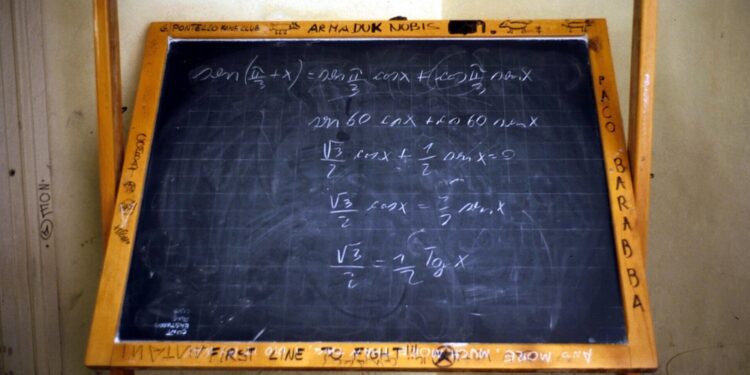 G. PONTELLO FANS CLUB ARMADUK NOBIS
sen(π/3 + x) = sen π/3 cosx + cos π/3 senx
sen 60 cosx + cos 60 senx
√3/2 cosx + 1/2 senx = 0
√3/2 cosx = 1/2 senx
√3/2 = 1/2 Tg x
PACO BARABBA
MON.
FIRST LINE TO FIGHT!!! MUCH, MORE, AND MORE